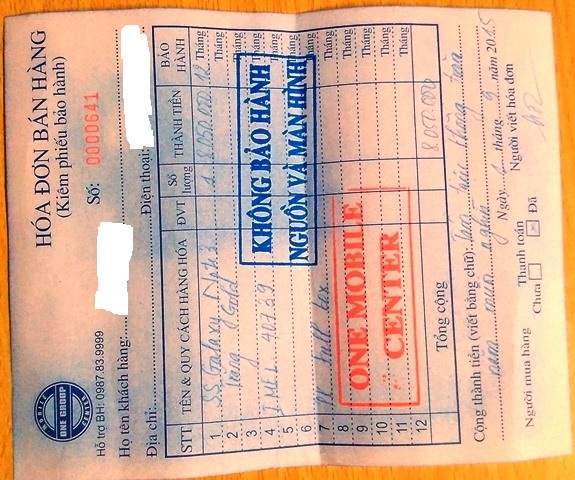 MOBILE
ONE GROUP
CENTER
Hỗ trợ BH: 0987.83.9999
HÓA ĐƠN BÁN HÀNG
(Kiêm phiếu bảo hành)
Số: 0000641
Họ tên khách hàng:
Địa chỉ: Điện thoại:
STT TÊN & QUY CÁCH HÀNG HÓA ĐVT Số lượng THÀNH TIỀN BẢO HÀNH
1 SS Galaxy Note 3 1 8.050.000 12 Tháng
2 Vàng Gold Tháng
3 Tháng
4 IMEI 40729 Tháng
5 Tháng
6 Tháng
7 full box Tháng
8 Tháng
9 Tháng
10 Tháng
11 Tháng
12
KHÔNG BẢO HÀNH
NGUỒN VÀ MÀN HÌNH
ONE MOBILE
CENTER
Tổng cộng 8.050.000
Cộng thành tiền (viết bằng chữ): Tám triệu không trăm
năm mươi nghìn
Ngày tháng 9 năm 2015
Người mua hàng Thanh toán Người viết hóa đơn
Chưa Đã